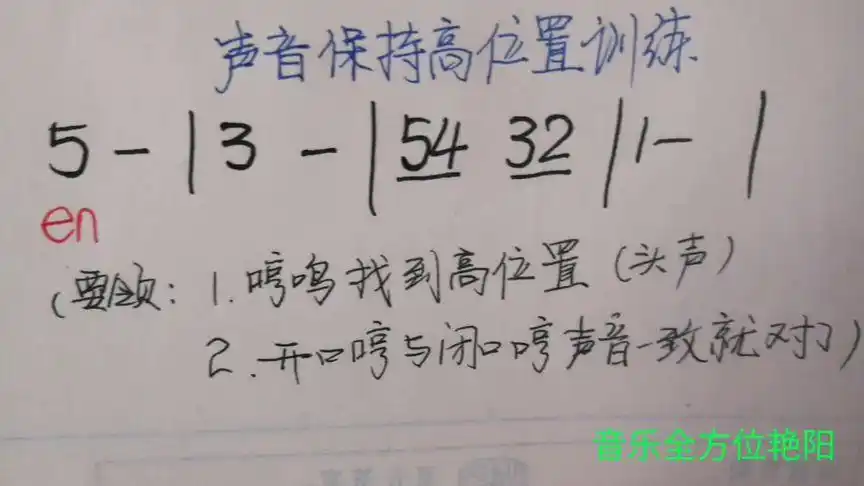 声音保持高位置训练
5 - | 3 - | 54 32 | 1 - |
en
(要领: 1. 哼鸣找到高位置 (头声)
2. 开口哼与闭口哼声音一致就对了)
音乐全方位艳阳